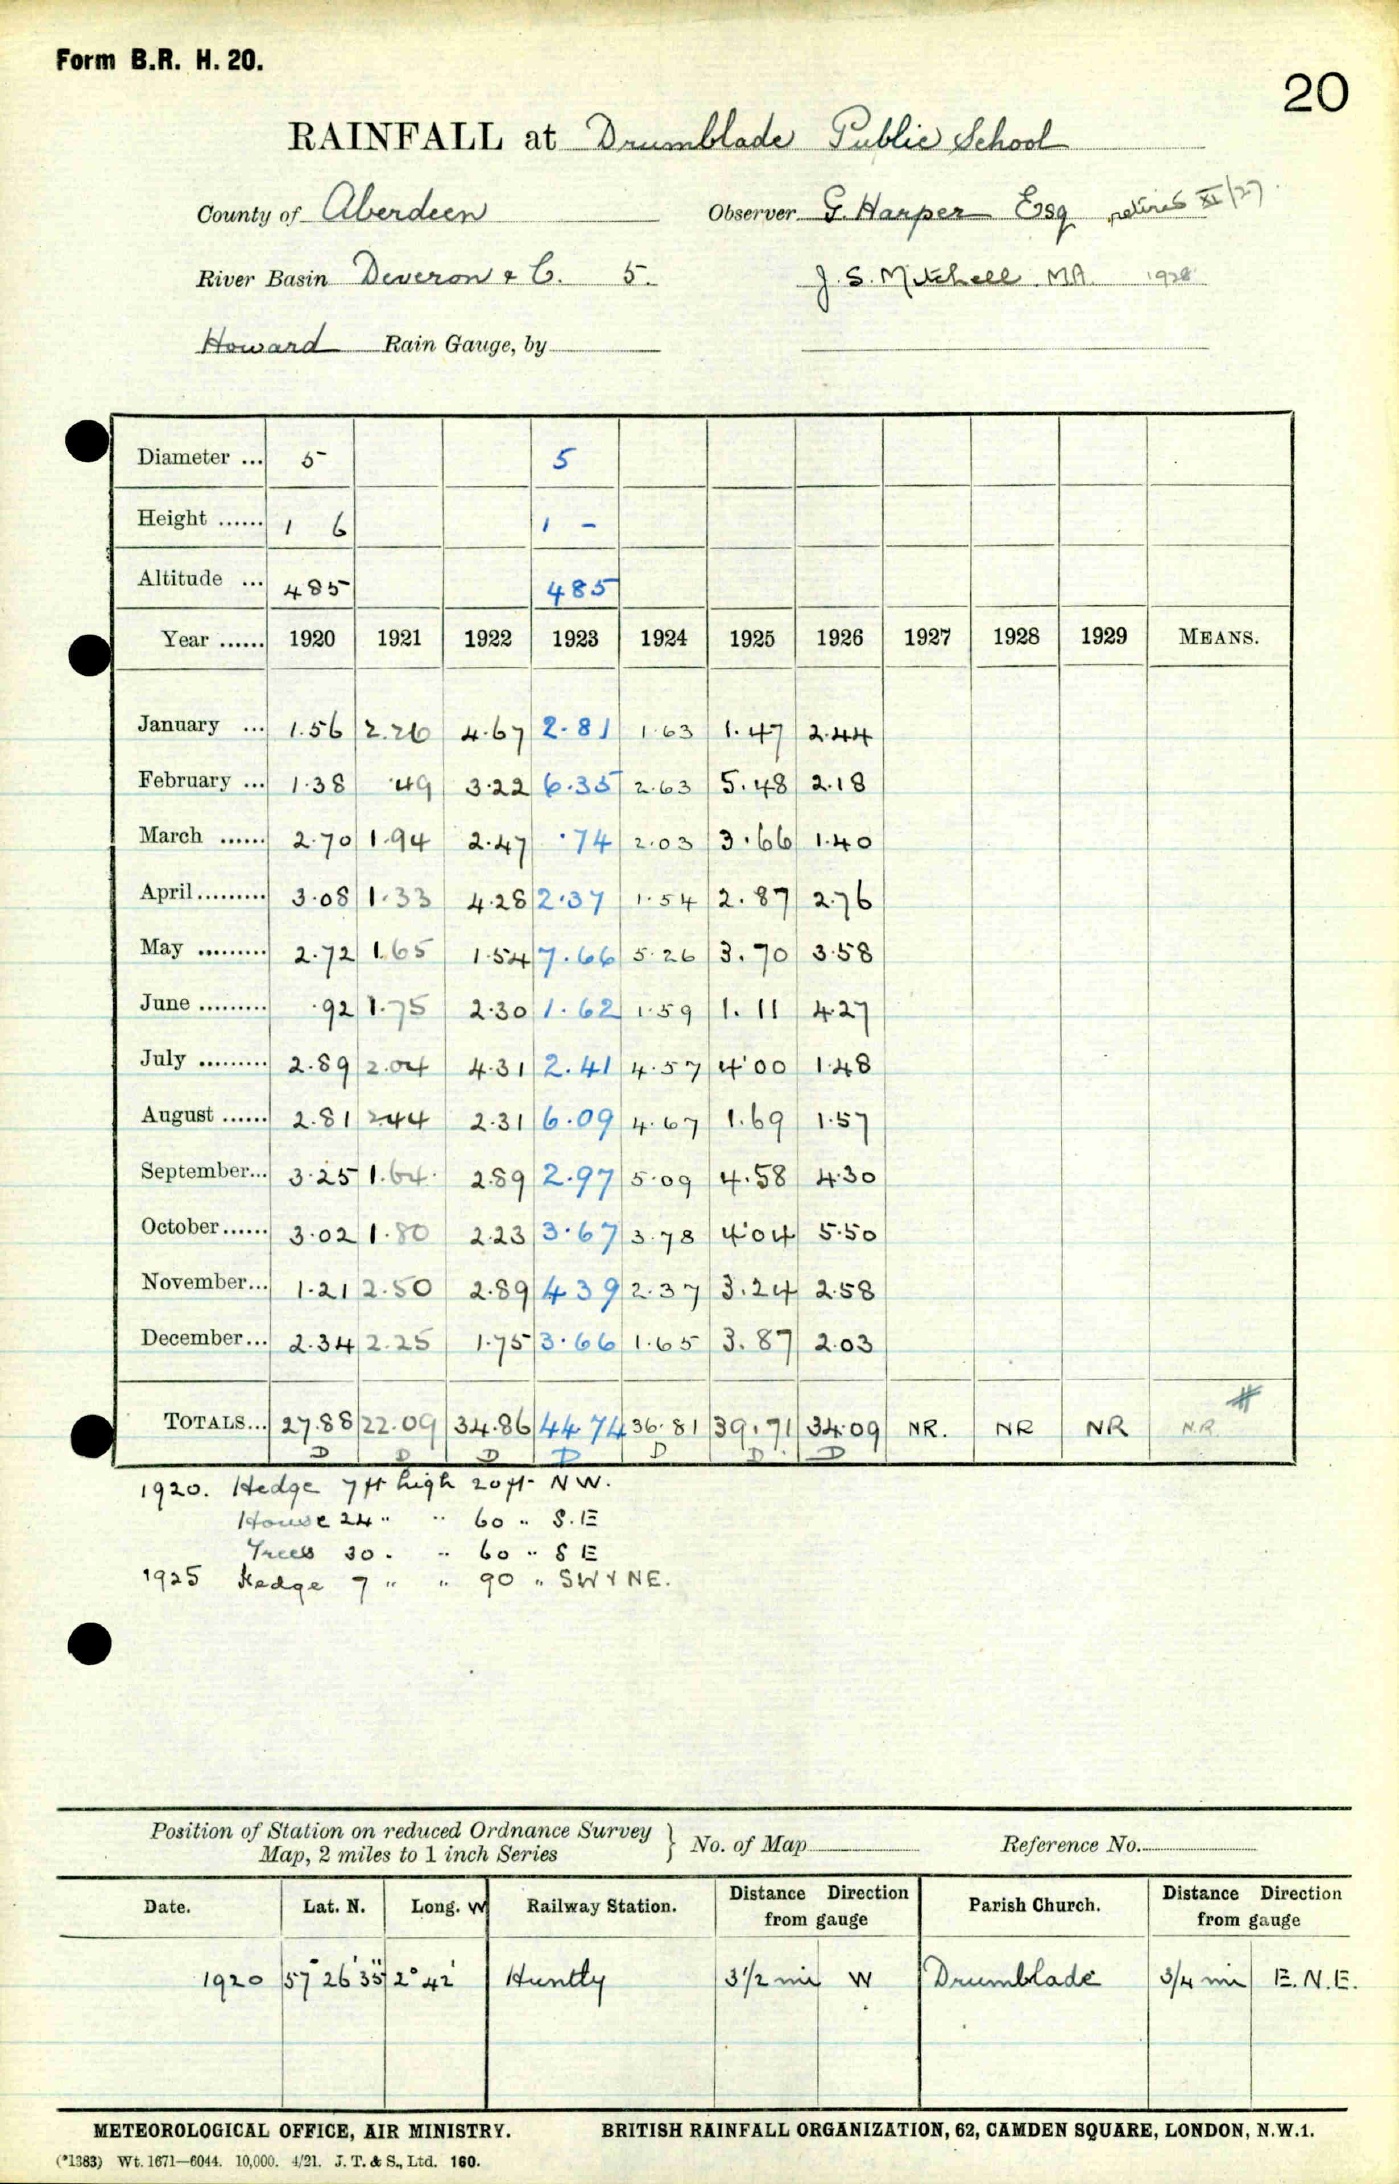 Form B.R. H. 20.
20
RAINFALL at Drumblade Public School
County of Aberdeen Observer G. Harper Esq retires XI/27.
River Basin Deveron & C. 5. J. S. Mitchell. M.A. 1928
Howard Rain Gauge, by
Diameter ... 5 5
Height ...... 1 6 1 -
Altitude ... 485 485
Year ...... 1920 1921 1922 1923 1924 1925 1926 1927 1928 1929 MEANS.
January ... 1.56 2.26 4.67 2.81 1.63 1.47 2.44
February ... 1.38 .49 3.22 6.35 2.63 5.48 2.18
March ...... 2.70 1.94 2.47 .74 2.03 3.66 1.40
April ......... 3.08 1.33 4.28 2.37 1.54 2.87 2.76
May ......... 2.72 1.65 1.54 7.66 5.26 3.70 3.58
June ......... .92 1.75 2.30 1.62 1.59 1.11 4.27
July ......... 2.89 2.04 4.31 2.41 4.57 4.00 1.48
August ...... 2.81 2.44 2.31 6.09 4.67 1.69 1.57
September... 3.25 1.64 2.89 2.97 5.09 4.58 4.30
October...... 3.02 1.80 2.23 3.67 3.78 4.04 5.50
November... 1.21 2.50 2.89 4 39 2.37 3.24 2.58
December... 2.34 2.25 1.75 3.66 1.65 3.87 2.03
#
TOTALS... 27.88 22.09 34.86 44.74 36.81 39.71 34.09 NR. NR NR N.R.
D D D D D D D
1920. Hedge 7 ft high 20 ft NW.
House 24 " " 60 " S.E
Trees 30 . " 60 " S E
1925 Hedge 7 " " 90 " SW & NE.
Position of Station on reduced Ordnance Survey
Map, 2 miles to 1 inch Series } No. of Map Reference No.
Date. Lat. N. Long. W Railway Station. Distance Direction from gauge Parish Church. Distance Direction from gauge
1920 57° 26' 35" 2° 42' Huntly 3 1/2 mi W Drumblade 3/4 mi E. N. E.
METEOROLOGICAL OFFICE, AIR MINISTRY. BRITISH RAINFALL ORGANIZATION, 62, CAMDEN SQUARE, LONDON, N.W.1.
(*1383) Wt. 1671—6044. 10,000. 4/21. J. T. & S., Ltd. 160.